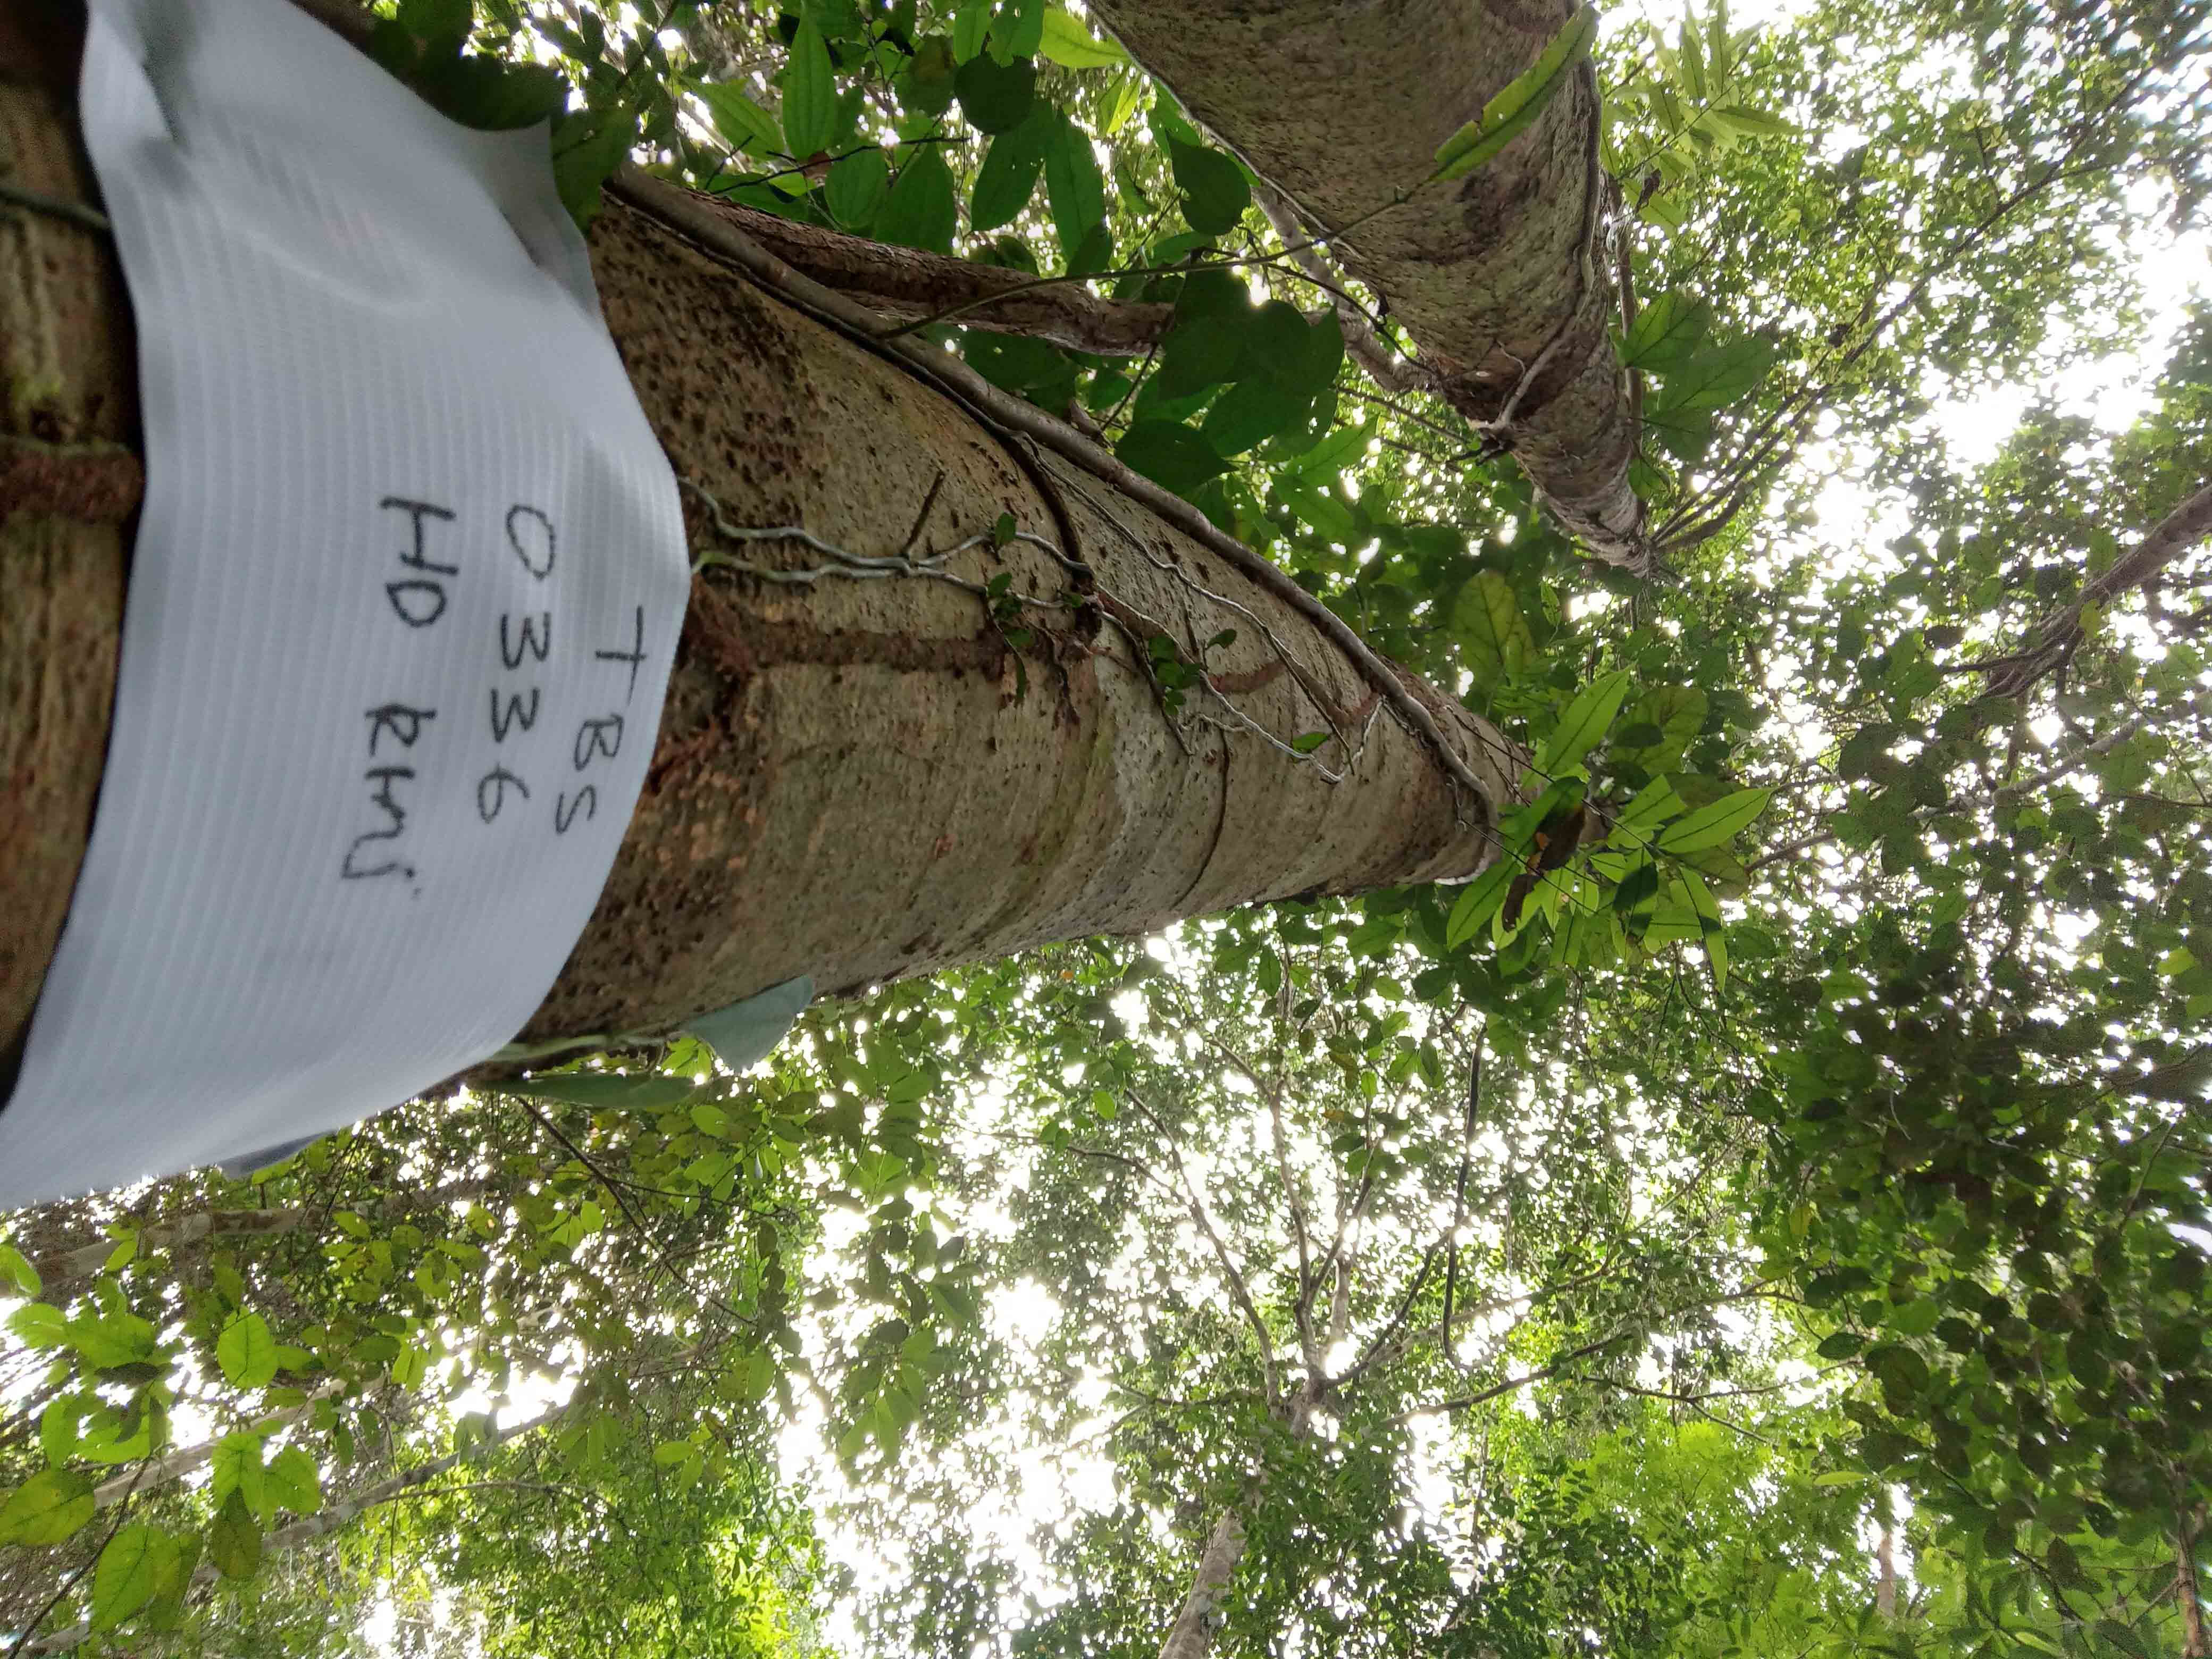 TBS
0336
HO RMJ